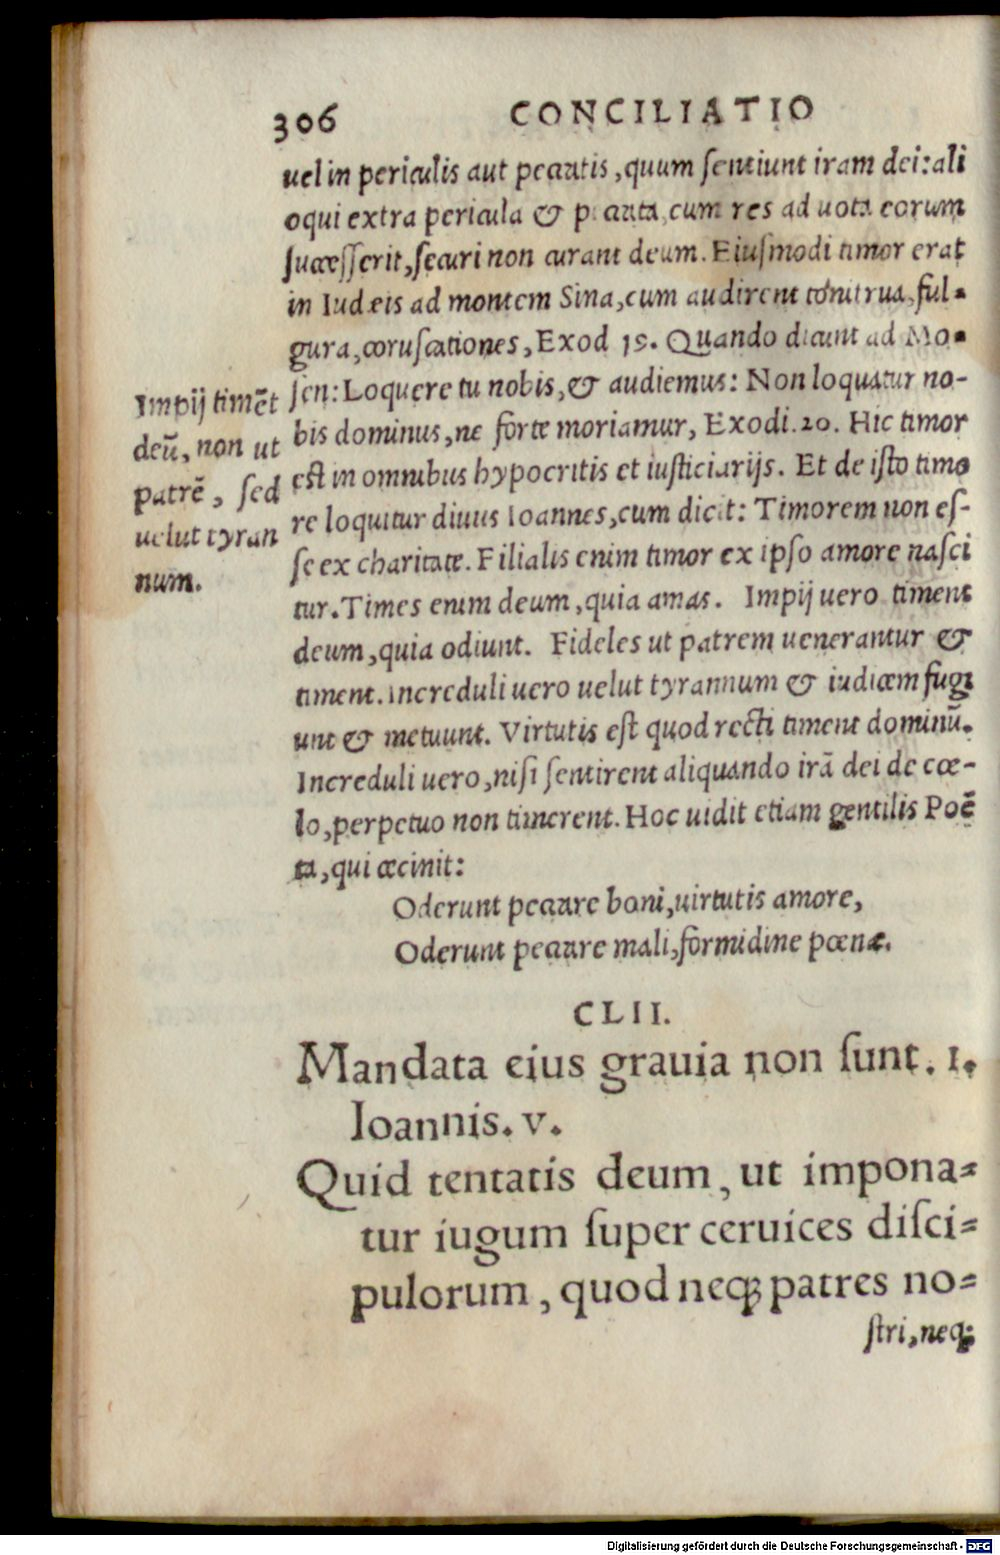 306 CONCILIATIO
uel in periculis aut peccatis, quum ſentiunt iram dei: ali
oqui extra pericula & peccata, cum res ad uota eorum
ſucceſſerit, ſecuri non curant deum. Eiuſmodi timor erat
in Iudæis ad montem Sina, cum audirent tonitrua, ful-
gura, coruſcationes, Exod 19. Quando dicunt ad Mo-
ſen: Loquere tu nobis, & audiemus: Non loquatur no-
bis dominus, ne forte moriamur, Exodi. 20. Hic timor
eſt in omnibus hypocritis et iuſticiarijs. Et de iſto timo
re loquitur diuus Ioannes, cum dicit: Timorem non eſ-
ſe ex charitate. Filialis enim timor ex ipſo amore naſci
tur. Times enim deum, quia amas. Impij uero timent
deum, quia odiunt. Fideles ut patrem uenerantur &
timent. Increduli uero uelut tyrannum & iudicem fugi
unt & metuunt. Virtutis eſt quod recti timent dominū.
Increduli uero, niſi ſentirent aliquando irā dei de cœ-
lo, perpetuo non timerent. Hoc uidit etiam gentilis Poē
ta, qui cecinit:
Impij timēt
deū, non ut
patrē, ſed
uelut tyran
num.
Oderunt peccare boni, uirtutis amore,
Oderunt peccare mali, formidine pœnæ.
CLII.
Mandata eius grauia non ſunt. 1.
Ioannis. v.
Quid tentatis deum, ut impona-
tur iugum ſuper ceruices diſci-
pulorum, quod neq; patres no-
ſtri, neq;
Digitalisierung gefördert durch die Deutsche Forschungsgemeinschaft - DFG